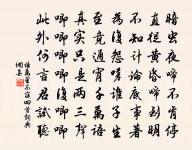 暗虫夜啼不肯停
直從黃昏啼到明
不知計論底事
為復怨嗟誰子生
至竟通宵千萬語
真實只是兩三聲
唧唧復唧唧
此外何言君試聽
楊萬里不寐四首詞典
網集